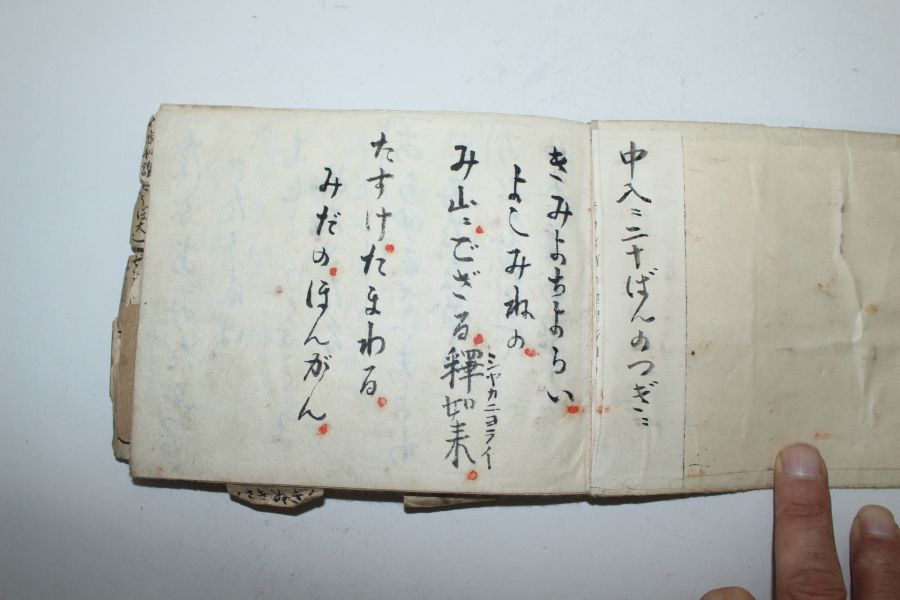 中入ニ二十ばんのつぎニ
きみよちよらい
よこみねの
み山ニござる釋如来
シャカニヨライ
たすけたまわる
みだのほんがん